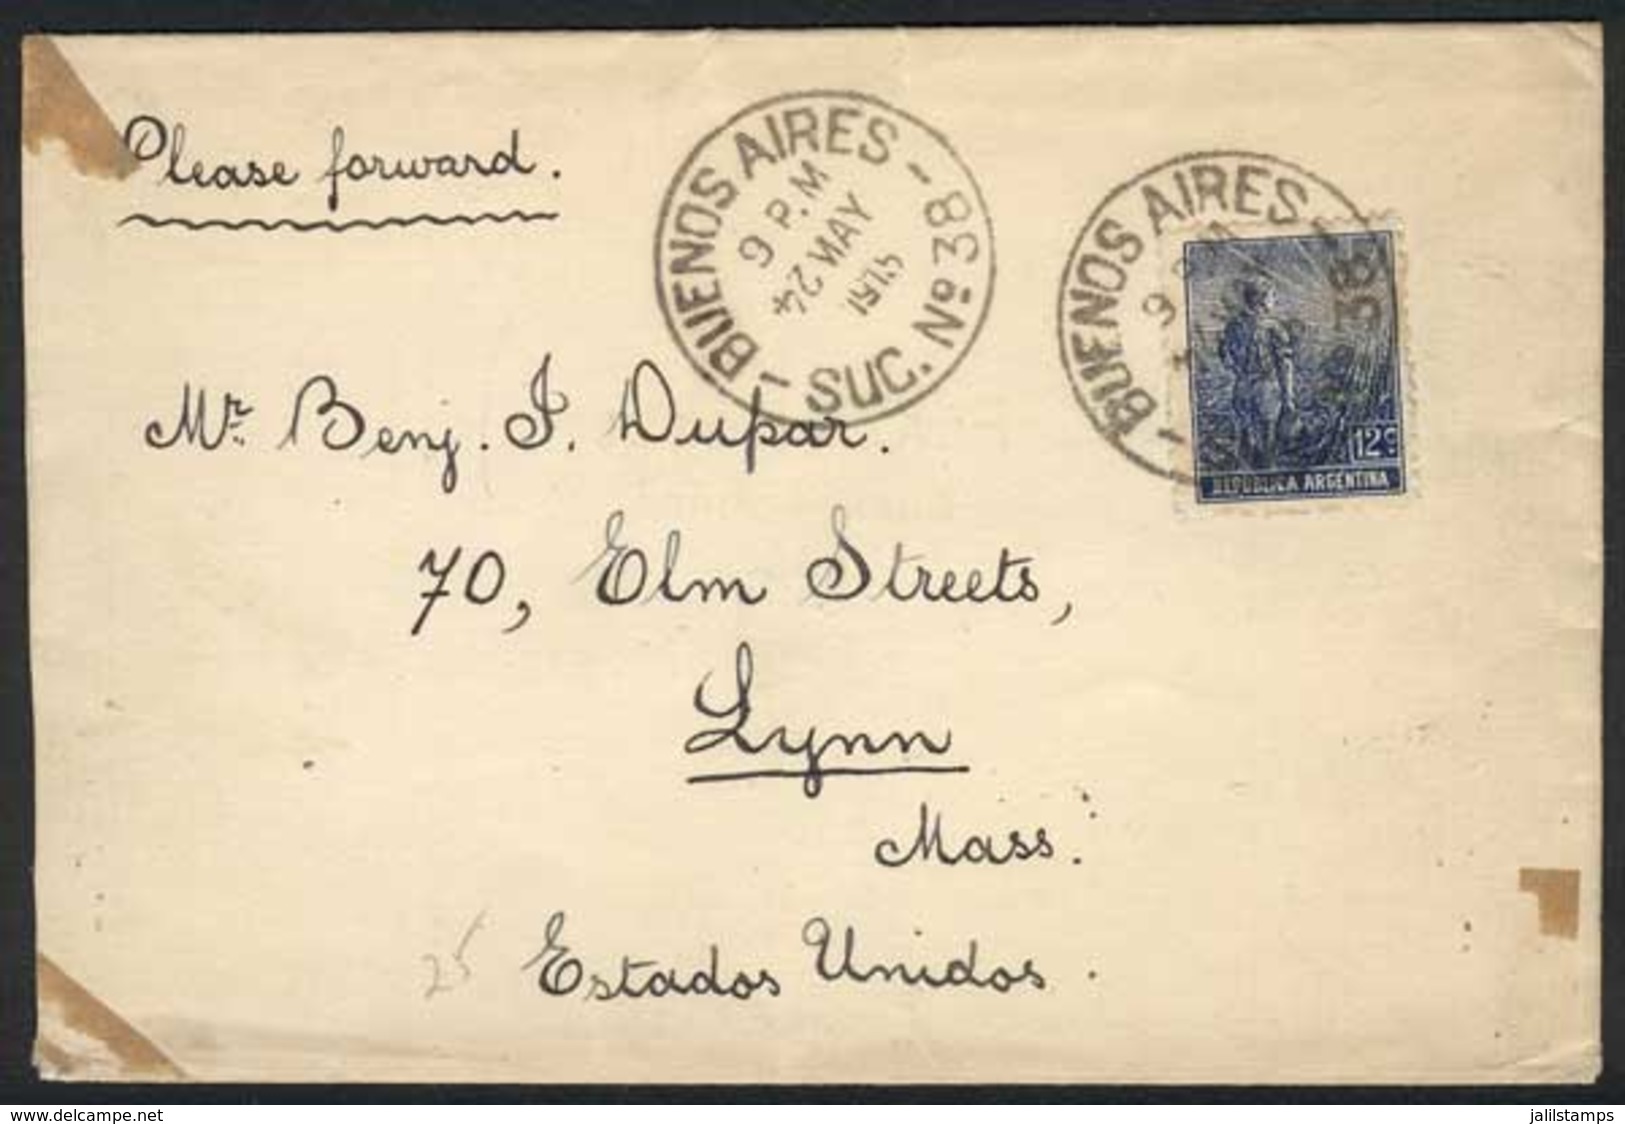 Please forward.
BUENOS AIRES - SUC. Nº 38 -
9 P.M
24 22 MAY
1915
BUENOS AIRES
9
38
12 c
REPUBLICA ARGENTINA
Mr. Benj. J. Dupar.
70, Elm Streets,
Lynn
Mass.
25
Estados Unidos.
www.delcampe.net
jalilstamps